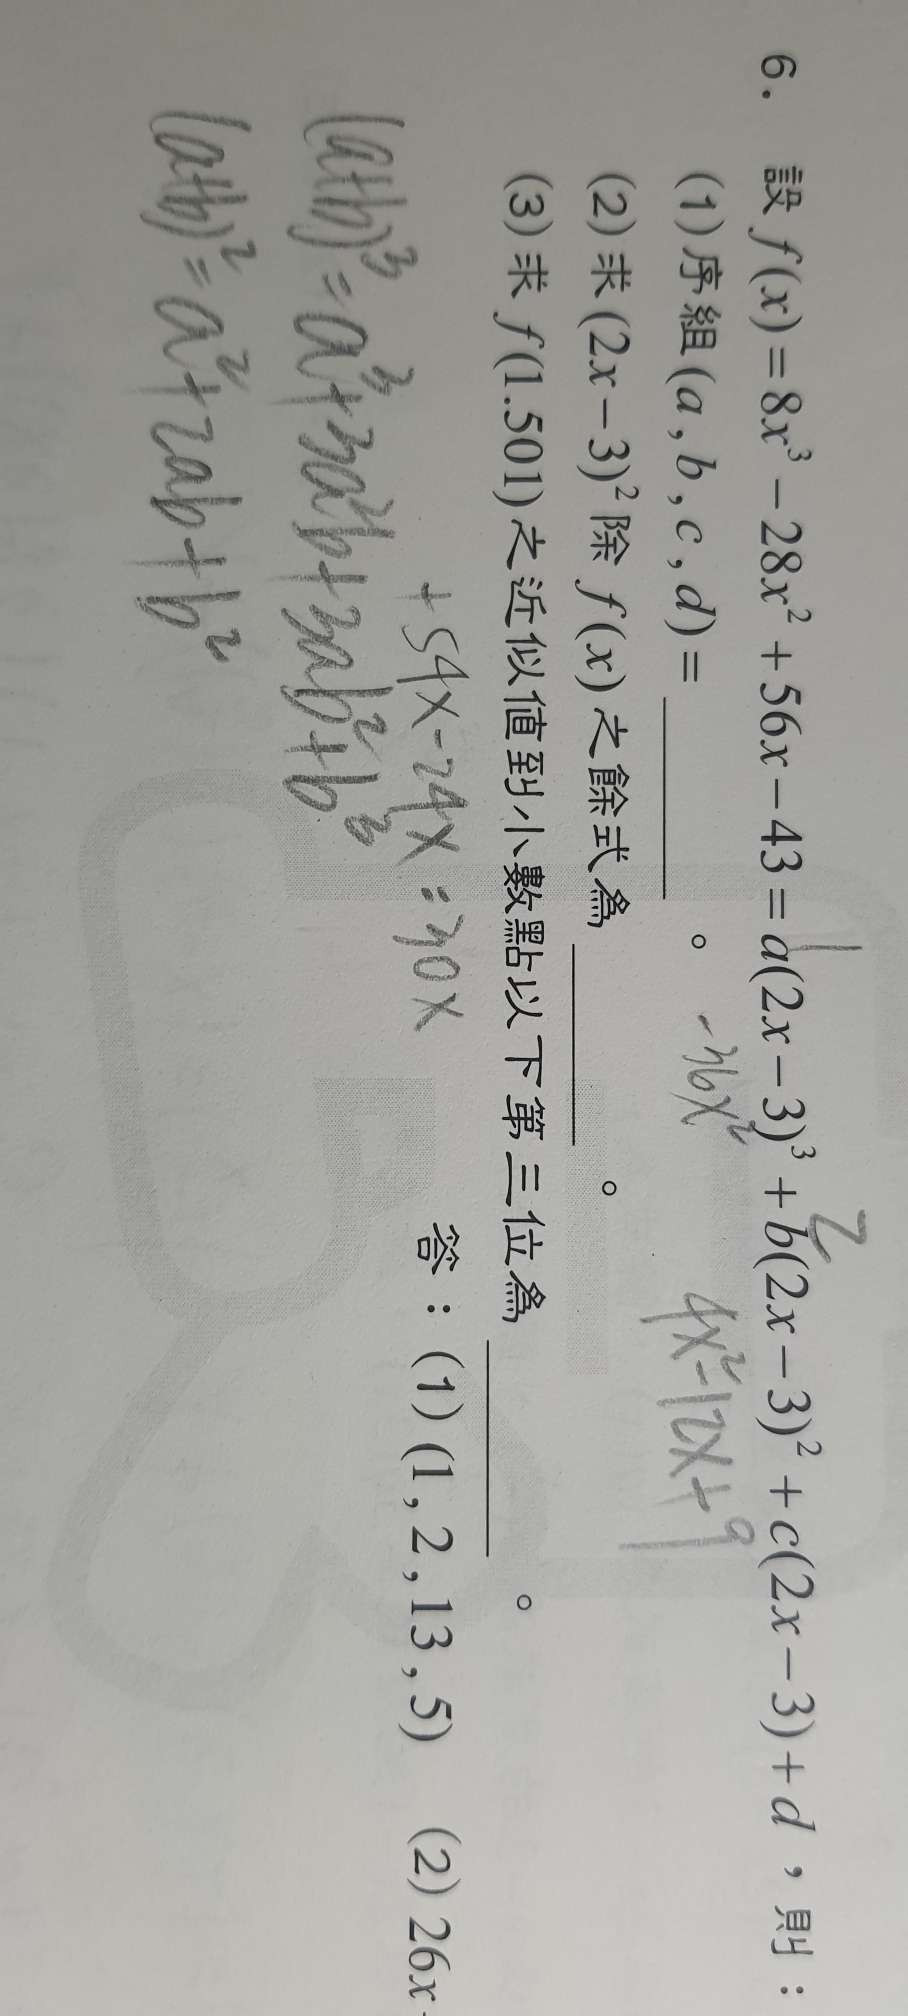 6. 設 f(x)=8x³−28x²+56x−43=a(2x−3)³+b(2x−3)²+c(2x−3)+d，則：
1 2
(1)序組(a,b,c,d)=＿＿＿。 -36x² 4x²-12x+9
(2)求(2x−3)²除 f(x)之餘式為＿＿＿。
(3)求 f(1.501)之近似值到小數點以下第三位為＿＿＿。
+54x-24x=30x
答：(1)(1,2,13,5) (2)26x
(a+b)³=a³+3a²b+3ab²+b³
(a+b)²=a²+2ab+b²